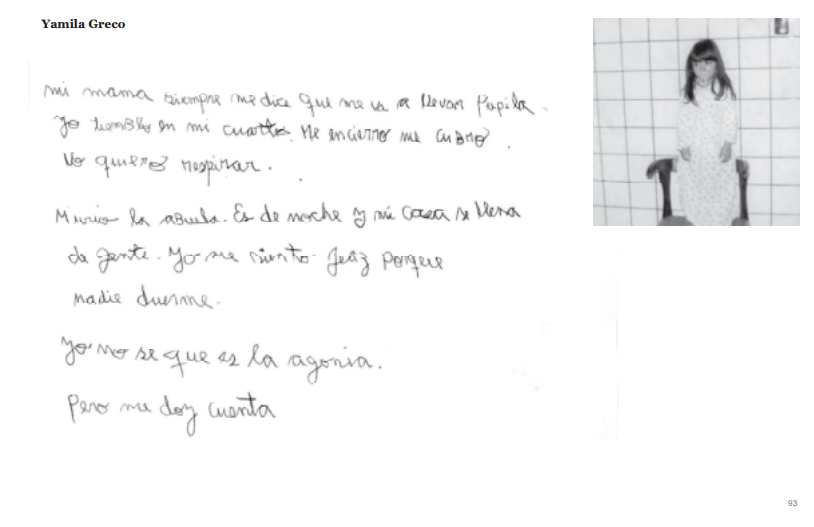 Yamila Greco
mi mama siempre me dice que me va a llevar Pupila.
Yo tiemblo en mi cuarto. Me encierro me cubro.
No quiero respirar.
Murio la abuela. Es de noche y mi casa se llena
da gente. Yo me siento feliz porque
nadie duerme.
Yo no se que es la agonia.
Pero me doy cuenta
93